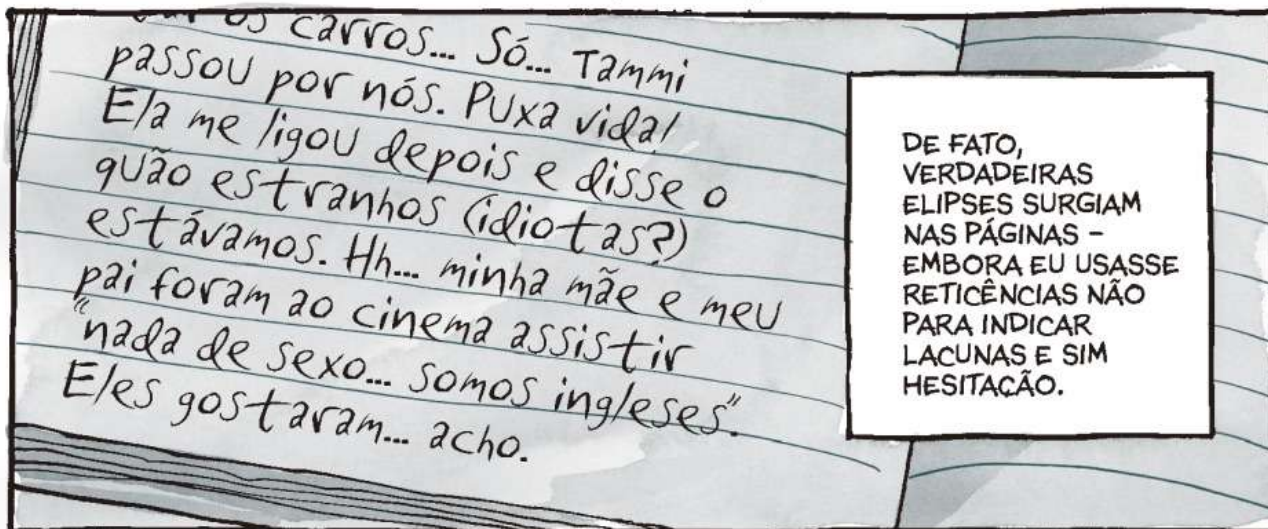 os carros... Só... Tammi
passou por nós. Puxa vida!
Ela me ligou depois e disse o
quão estranhos (idiotas?)
estávamos. Hh... minha mãe e meu
pai foram ao cinema assistir
"nada de sexo... somos ingleses".
Eles gostaram... acho.
DE FATO,
VERDADEIRAS
ELIPSES SURGIAM
NAS PÁGINAS –
EMBORA EU USASSE
RETICÊNCIAS NÃO
PARA INDICAR
LACUNAS E SIM
HESITAÇÃO.